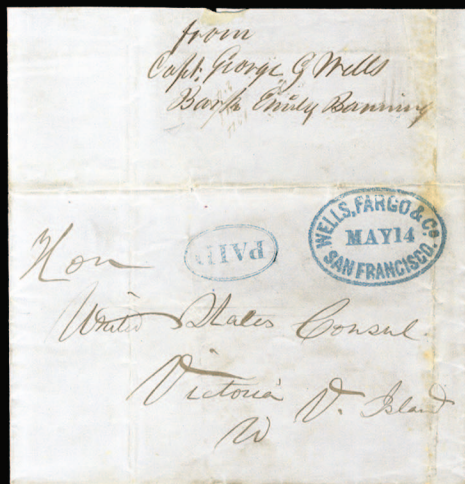 from
Capt. George G Wells
Bark Emily Banning
WELLS, FARGO & Co
MAY 14
SAN FRANCISCO.
PAID
Hon
United States Consul.
Victoria V. Island